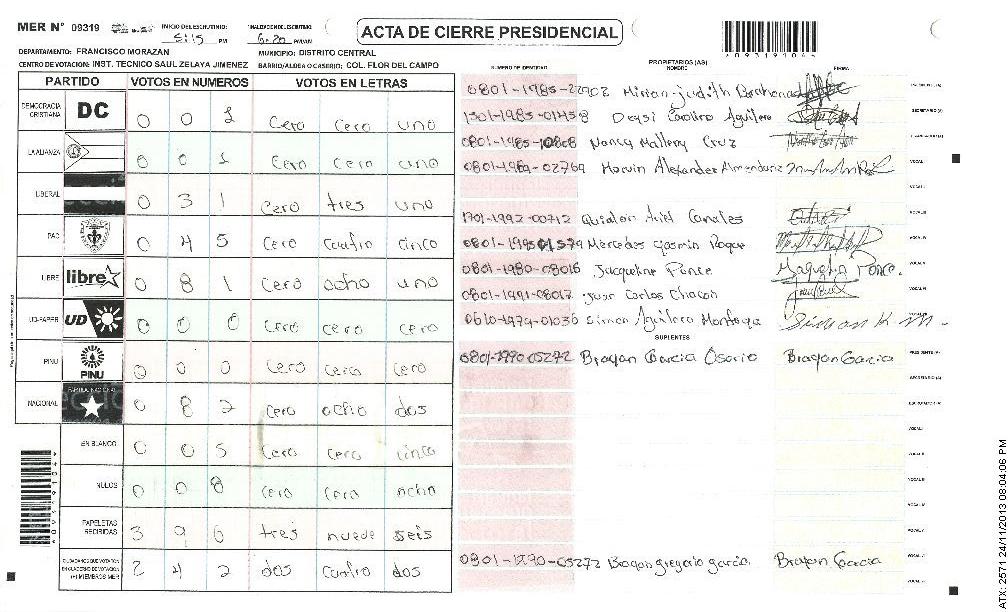 MER N° 09319 INICIO DEL ESCRUTINIO: 5:15 PM FINALIZACION DEL ESCRUTINIO: 6:20 PM/AM
ACTA DE CIERRE PRESIDENCIAL
*09319104*
DEPARTAMENTO: FRANCISCO MORAZAN MUNICIPIO: DISTRITO CENTRAL
CENTRO DE VOTACION: INST. TECNICO SAUL ZELAYA JIMENEZ BARRIO/ALDEA O CASERIO: COL. FLOR DEL CAMPO
PARTIDO VOTOS EN NUMEROS VOTOS EN LETRAS
DEMOCRACIA CRISTIANA DC 0 0 1 cero cero uno
LA ALIANZA 0 0 1 cero cero uno
LIBERAL 0 3 1 cero tres uno
PAC 0 4 5 cero cuatro cinco
LIBRE libre 0 8 1 cero ocho uno
UD-FAPER UD 0 0 0 cero cero cero
PINU PINU 0 0 0 cero cero cero
NACIONAL PARTIDO NACIONAL 0 8 2 cero ocho dos
EN BLANCO 0 0 5 cero cero cinco
NULOS 0 0 8 cero cero ocho
PAPELETAS RECIBIDAS 3 9 6 tres nueve seis
CIUDADANOS QUE VOTARON EN CUADERNO DE VOTACION (+) MIEMBROS MER 2 4 2 dos cuatro dos
NUMERO DE IDENTIDAD PROPIETARIOS (AS) NOMBRE FIRMA
0801-1985-22902 Mirian Judith Barahona
Deysi Carolina Aguilera
0801-1985-10808 Nancy Mallery Cruz
0801-1969-02769 Marvin Alexander Almendarez
1701-1992-00712 Canales
0801-1985-01579 Mercedes Yasmin Roque
0801-1980-08016 Jacqueline Ponce
0801-1991-08017 Juan Carlos Chacon
0610-1979-01036 Simon Aguilera Montoya
SUPLENTES
0801-1990-05272 Brayan Garcia Osorio Brayan Garcia
0801-1990-05272 Brayan gregorio garcia Brayan Garcia
ATX: 2571 24/11/2013 08:04:06 PM